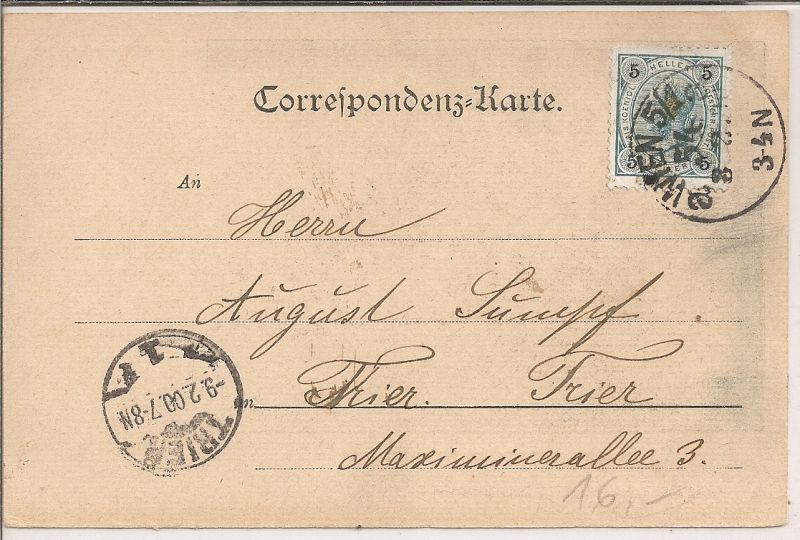 Correspondenz-Karte.
5 HELLER 5
5 5
WIEN 5/1
3-4N
An
Herrn
August Sumpf
Trier. Trier
Maximinerallee 3.
TRIER
-9.2.00.7-8N
16,-